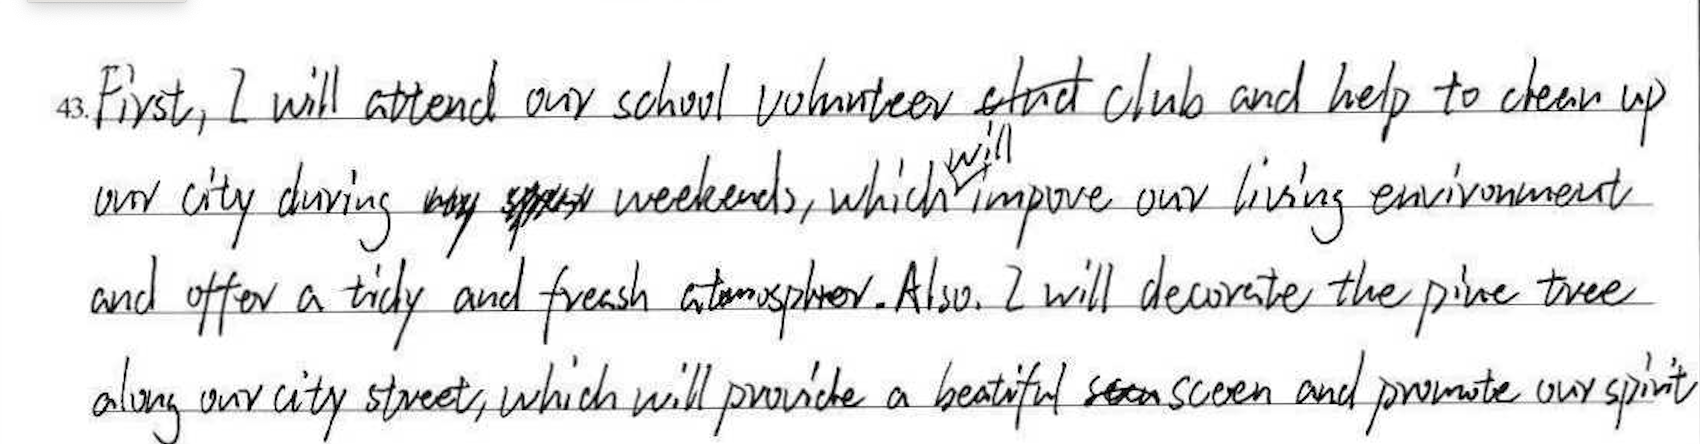 43. First, I will attend our school volunteer club and help to clean up
our city during weekends, which will impove our living environment
and offer a tidy and freash atmospher. Also. I will decorate the pine tree
along our city street, which will provide a beatiful sceen and promote our spirit